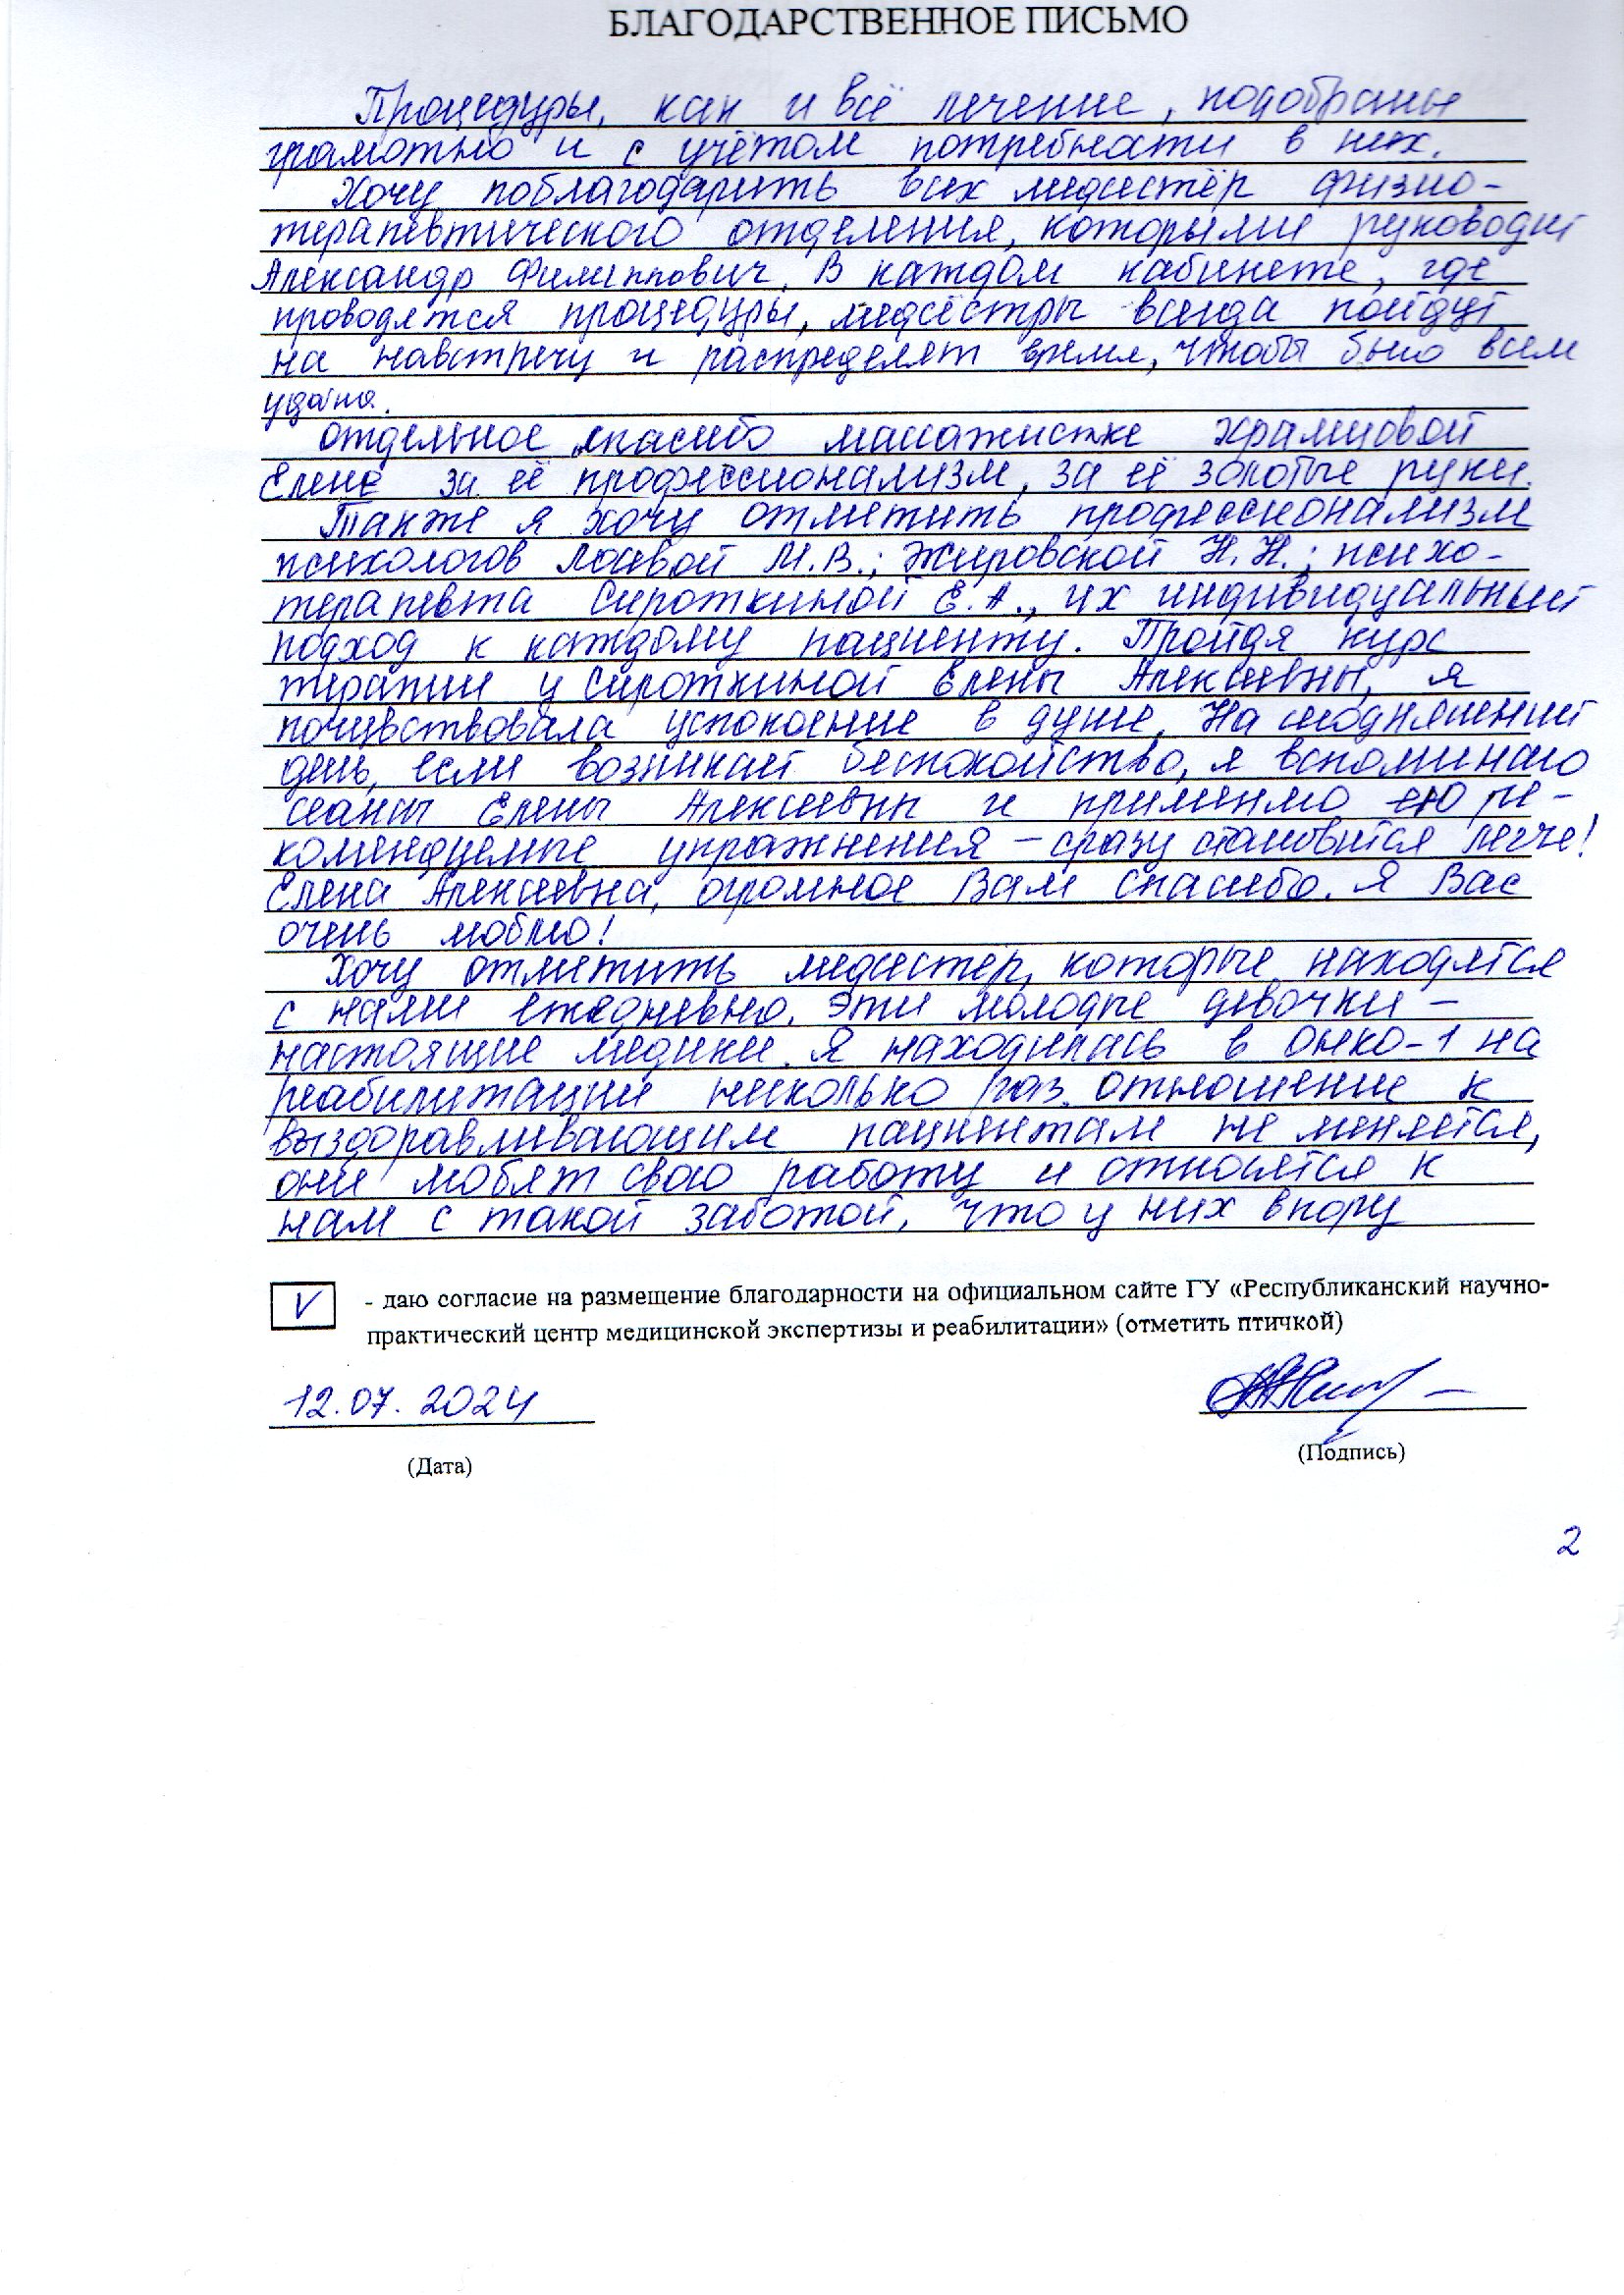 БЛАГОДАРСТВЕННОЕ ПИСЬМО
Процедуры, как и всё лечение, подобраны
грамотно и с учётом потребности в них.
Хочу поблагодарить всех медсестёр физио-
терапевтического отделения, которыми руководит
Александр Филиппович. В каждом кабинете, где
проводятся процедуры, медсёстры всегда пойдут
на навстречу и распределят время, чтобы было всем
удобно.
Отдельное спасибо массажистке Храмцовой
Елене за её профессионализм, за её золотые руки.
Также я хочу отметить профессионализм
психологов М.В.; Жировской Н.Н.; психо-
терапевта Сироткиной Е.А., их индивидуальный
подход к каждому пациенту. Пройдя курс
терапии у Сироткиной Елены Алексеевны, я
почувствовала успокоение в душе. На сегодняшний
день, если возникает беспокойство, я вспоминаю
сеансы Елены Алексеевны и применяю ею ре-
комендуемые упражнения – сразу становится легче!
Елена Алексеевна, огромное Вам спасибо. Я Вас
очень люблю!
Хочу отметить медсестёр, которые находятся
с нами ежедневно. Эти молодые девочки –
настоящие медики. Я находилась в онко-1 на
реабилитации несколько раз. Отношение к
выздоравливающим пациентам не меняется,
они любят свою работу и относятся к
нам с такой заботой, что у них впору
V - даю согласие на размещение благодарности на официальном сайте ГУ «Республиканский научно-
практический центр медицинской экспертизы и реабилитации» (отметить птичкой)
12.07.2024
(Дата) (Подпись)
2